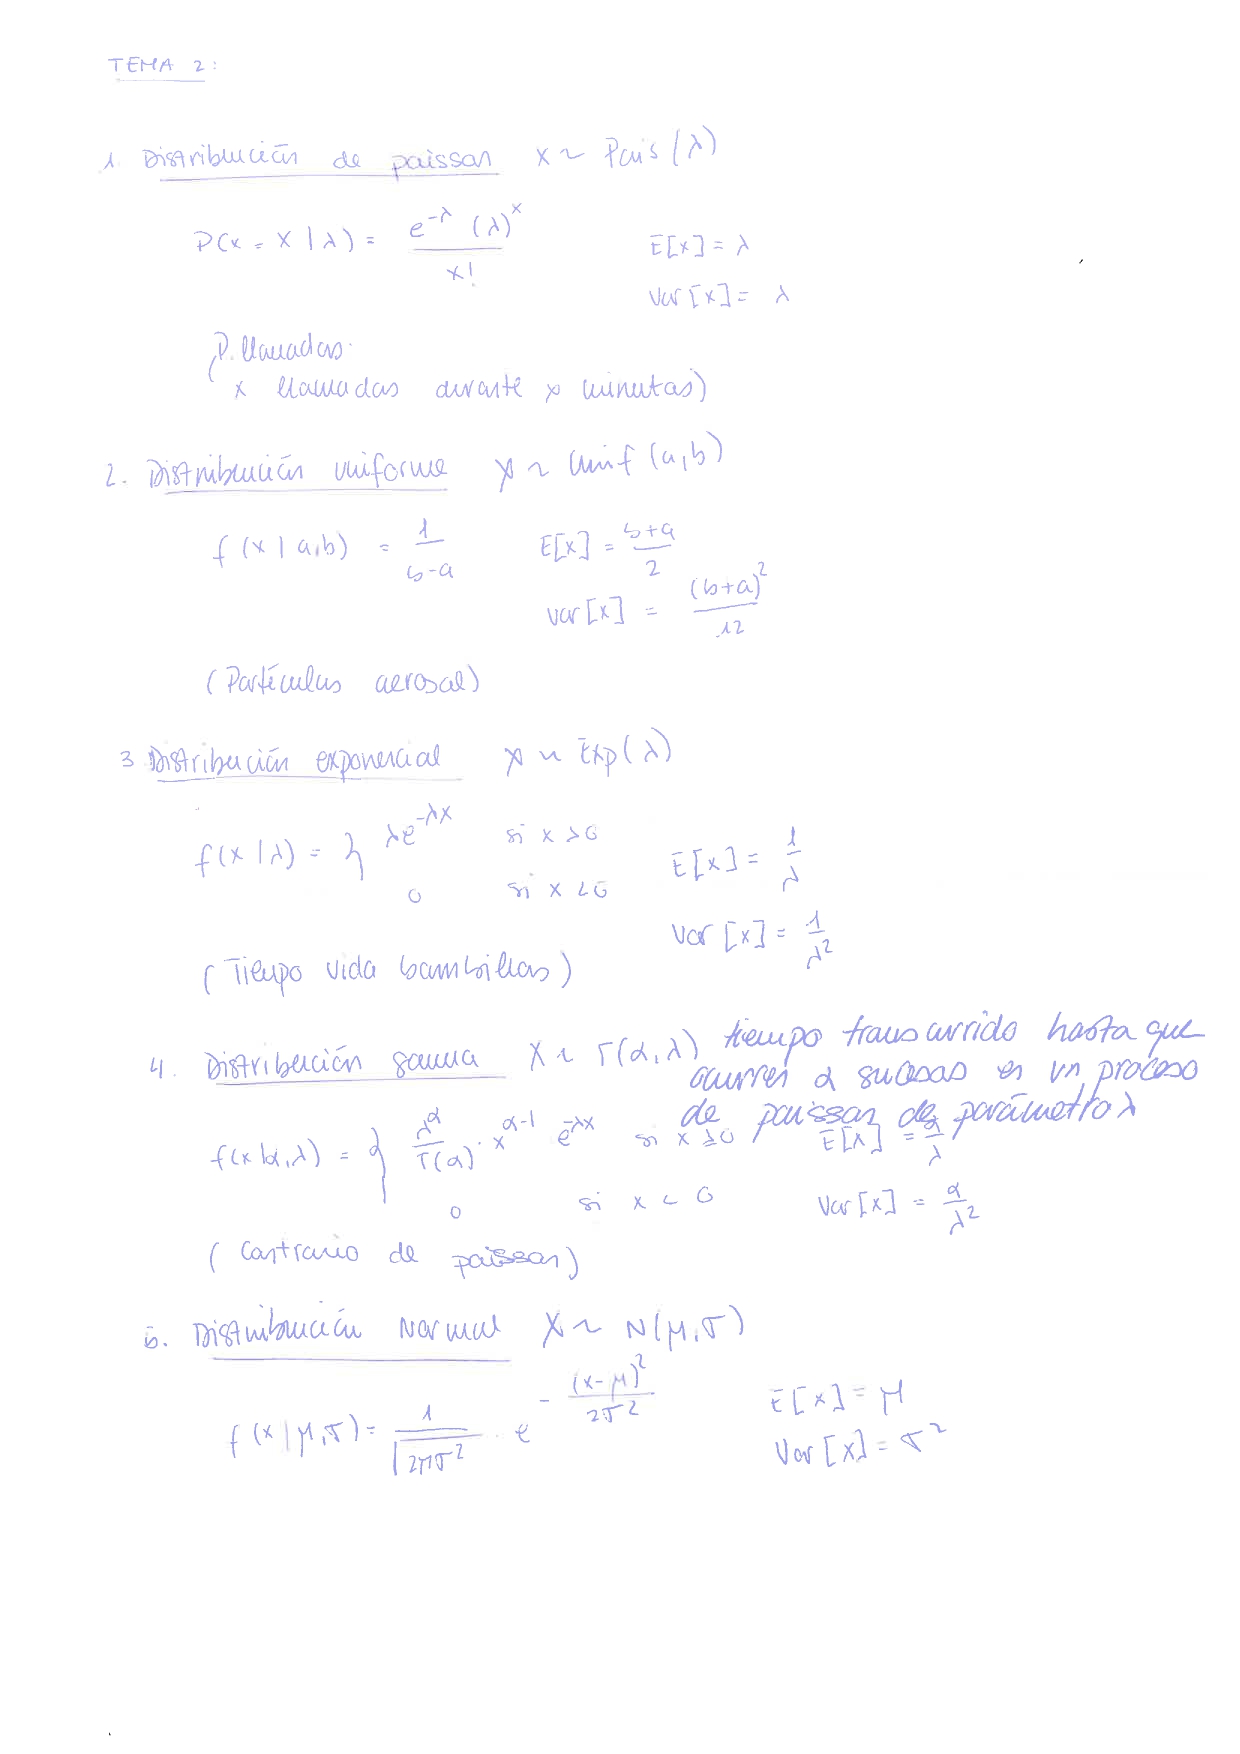 TEMA 2:
1. Distribución de poisson X ~ Pois(λ)
P(X = x | λ) = e^{-λ} (λ)^x / x!
E[x] = λ
Var[x] = λ
(P. llamadas.
x llamadas durante x minutos)
2. Distribución uniforme X ~ Unif(a,b)
f(x | a,b) = 1 / b-a
E[x] = b+a / 2
Var[x] = (b+a)^2 / 12
(Partículas aerosol)
3 Distribución exponencial X ~ Exp(λ)
f(x | λ) = { λe^{-λx} si x ≥ 0
0 si x < 0
E[x] = 1/λ
Var[x] = 1/λ²
(Tiempo vida bombillas)
4. Distribución gamma X ~ Γ(α,λ) tiempo transcurrido hasta que
ocurren α sucesos en un proceso
de poisson de parámetro λ
f(x | α,λ) = { λ^α / Γ(α) · x^{α-1} e^{-λx} si x ≥ 0
0 si x < 0
E[x] = α/λ
Var[x] = α/λ²
(Contrario de poisson)
5. Distribución Normal X ~ N(μ,σ)
f(x | μ,σ) = 1 / √2πσ² · e^{-(x-μ)² / 2σ²}
E[x] = μ
Var[x] = σ²